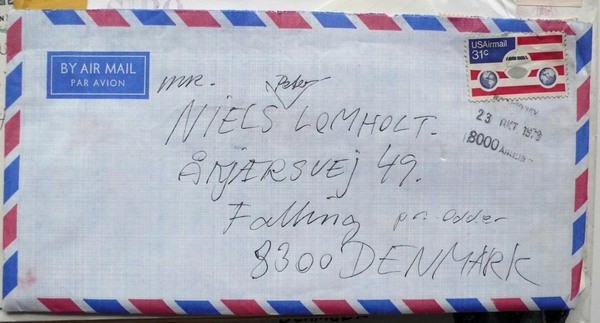 BY AIR MAIL
PAR AVION
USAirmail
31c
23 OKT 1979
8000
mr. Peter
NIELS LOMHOLT.
ÅKJÆRSVEJ 49.
Falling pr. Odder
8300 DENMARK